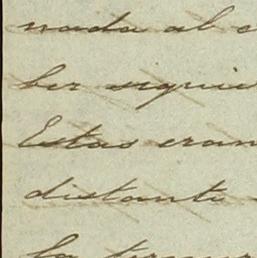 nada al c
ber siquie
Estas eran
distante
la